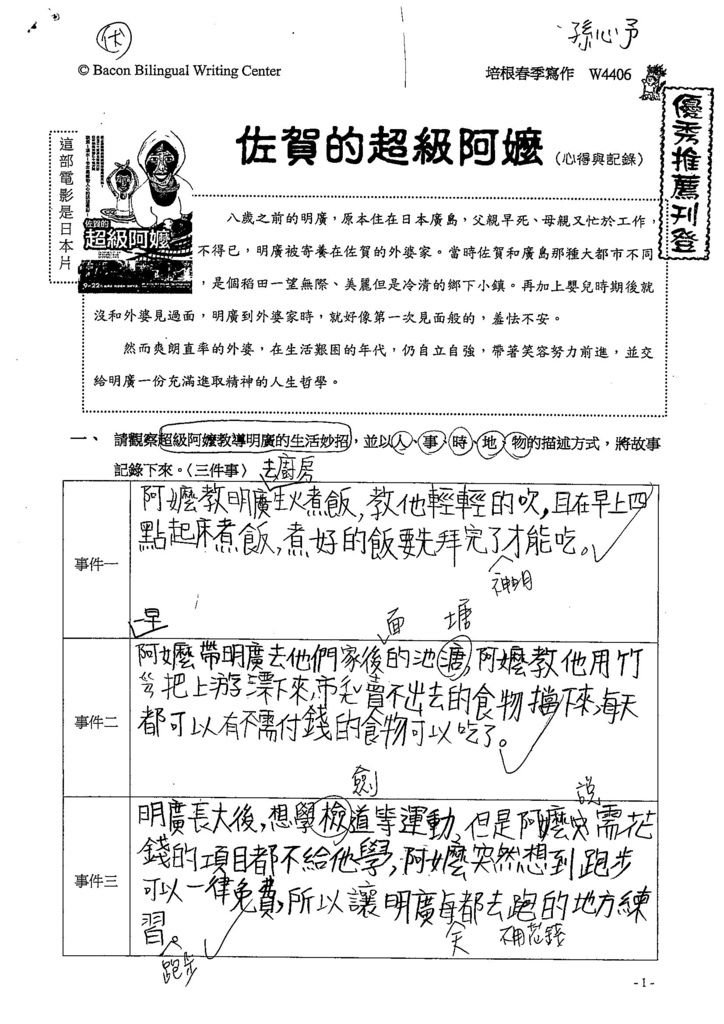 伏
孫心予
© Bacon Bilingual Writing Center
培根春季寫作 W4406
優秀推薦刊登
佐賀的超級阿嬤(心得與記錄)
這部電影是日本片
佐賀的
超級阿嬤
9-22
八歲之前的明廣，原本住在日本廣島，父親早死、母親又忙於工作，
不得已，明廣被寄養在佐賀的外婆家。當時佐賀和廣島那種大都市不同
，是個稻田一望無際、美麗但是冷清的鄉下小鎮。再加上嬰兒時期後就
沒和外婆見過面，明廣到外婆家時，就好像第一次見面般的，羞怯不安。
然而爽朗直率的外婆，在生活艱困的年代，仍自立自強，帶著笑容努力前進，並交
給明廣一份充滿進取精神的人生哲學。
一、 請觀察超級阿嬤教導明廣的生活妙招，並以人、事、時、地、物的描述方式，將故事
記錄下來。〈三件事〉
去廚房
事件一
阿嬤教明廣生火煮飯，教他輕輕的吹，且在早上四
點起床煮飯，煮好的飯要先拜完了才能吃。
神明
一早
面 塘
事件二
阿嬤帶明廣去他們家後的池溏，阿嬤教他用竹
竿把上游漂下來，市利賣不出去的食物擋下來，每天
都可以有不需付錢的食物可以吃了。
劍
說
事件三
明廣長大後，想學檢道等運動，但是阿嬤只需花
錢的項目都不給他學，阿嬤突然想到跑步
可以一律免費，所以讓明廣每都去跑的地方練
習。
天
不用花錢
跑步
- 1 -